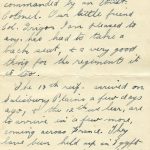 commanded by an Irish
Colonel. Our little friend
Col. Grogan I am pleased to
say, has had to take a
back seat, & a very good
thing for the regiment it
is too.
The 15th regt. arrived on
Salisbury Plains a few days
ago, & the 13th are
to arrive in a few more,
coming across France. They
have been held up in Egypt